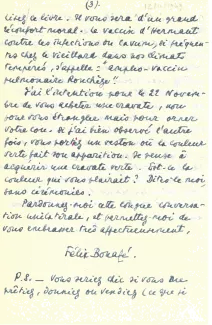 (3).
lirez le livre. Il vous sera d'un grand
réconfort moral. Le vaccin d'
contre les infections du cavum, si fréquen-
tes chez le vieillard dans nos climats
tempérés, s'appelle : "ampho-vaccin
pulmonaire Ronchèse"!
J'ai l'intention pour le 22 Novem-
bre de vous acheter une cravate, non
pour vous étrangler mais pour orner
votre cou. Si j'ai bien observé l'autre
fois, vous portez un veston où la couleur
verte fait son apparition. Je pense à
acquérir une cravate verte. Est-ce la
couleur qui vous plairait? Dites-le moi,
sans cérémonies.
Pardonnez-moi cette longue conversa-
tion unilatérale, et permettez-moi de
vous embrasser très affectueusement,
Félix Bonafé.
P.S. — Vous seriez chic si vous me
prêtiez, donniez ou vendiez (ce que si